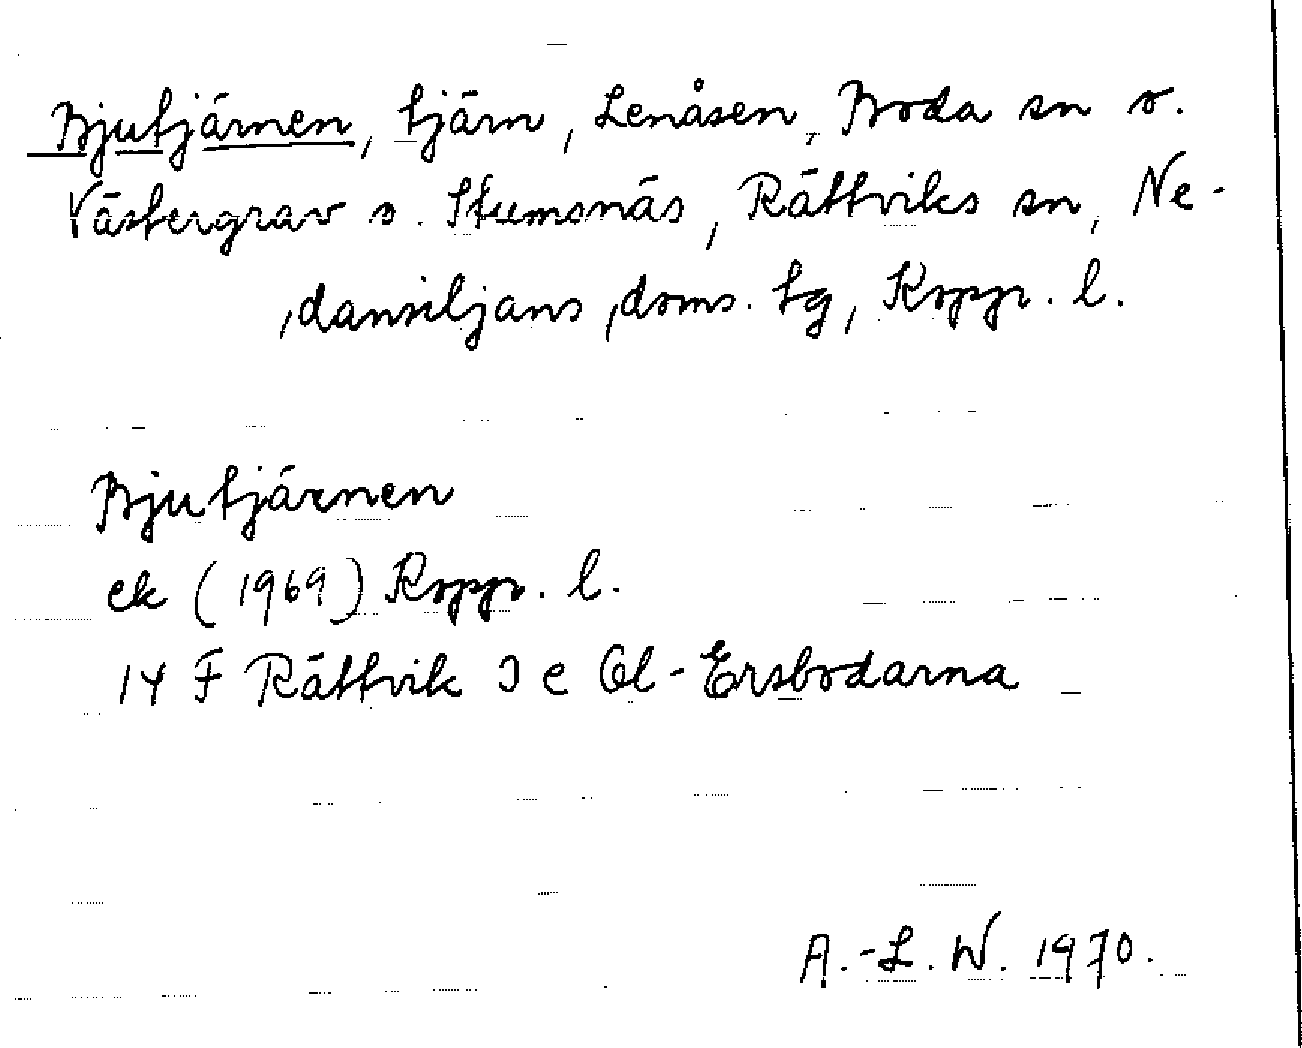 Bjutjärnen, tjärn, Lenåsen, Boda sn o.
Västergrav o. Stumsnäs, Rättviks sn, Ne-
dansiljans doms. tg, Kopp. l.
Bjutjärnen
ek (1969) Kopp. l.
14 F Rättvik 3 e Ol-Ersbodarna
A.-L. W. 1970.